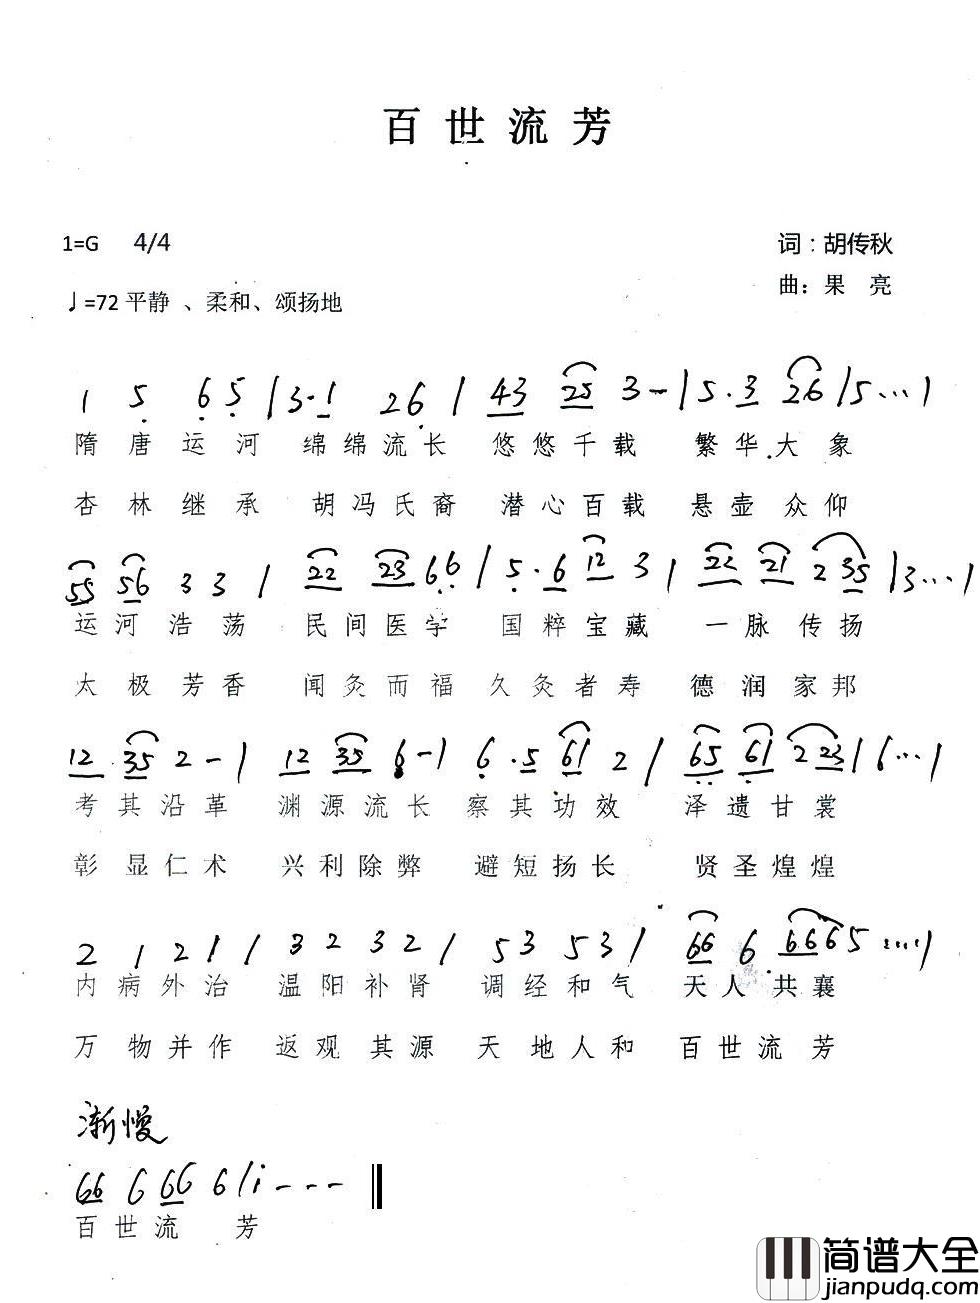 百世流芳
1=G 4/4 词：胡传秋
♩=72 平静 、柔和、颂扬地 曲：果 亮
1 5 6 5 | 3·1 2 6 | 43 25 3 - | 5·3 26 | 5··· |
隋唐运河 绵绵流长 悠悠千载 繁华大象
杏林继承 胡冯氏裔 潜心百载 悬壶众仰
55 56 3 3 | 22 23 66 | 5·6 12 3 | 22 21 2 35 | 3··· |
运河浩荡 民间医学 国粹宝藏 一脉传扬
太极芳香 闻灸而福 久灸者寿 德润家邦
12 35 2 - | 12 35 6 - | 6·5 61 2 | 65 61 2 23 | 6··· |
考其沿革 渊源流长 察其功效 泽遗甘裳
彰显仁术 兴利除弊 避短扬长 贤圣煌煌
2 1 2 1 | 3 2 3 2 | 5 3 5 3 | 66 6 6665 ····|
内病外治 温阳补肾 调经和气 天人共襄
万物并作 返观其源 天地人和 百世流芳
渐慢
66 6 66 6 | i - - - ‖
百世流 芳
简谱大全
jianpudq.com